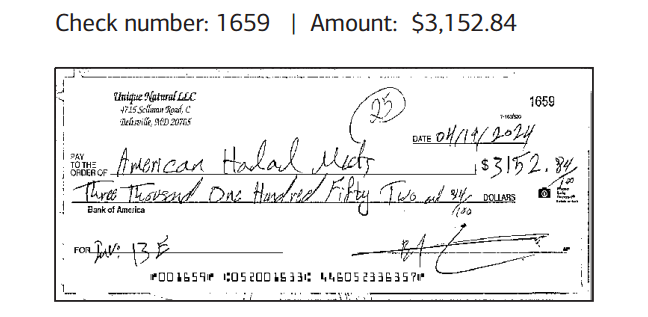 Check number: 1659 | Amount: $3,152.84
Unique Natural LLC
4715 Sellman Road, C
Beltsville, MD 20705
25
1659
DATE 04/19/2024
PAY TO THE ORDER OF American Halal Meats $3152.84/100
Three Thousand One Hundred Fifty Two and 84/100 DOLLARS
Bank of America
FOR Inv: 13 E
⑈001659⑈ ⑆052001633⑆ 446052336357⑈